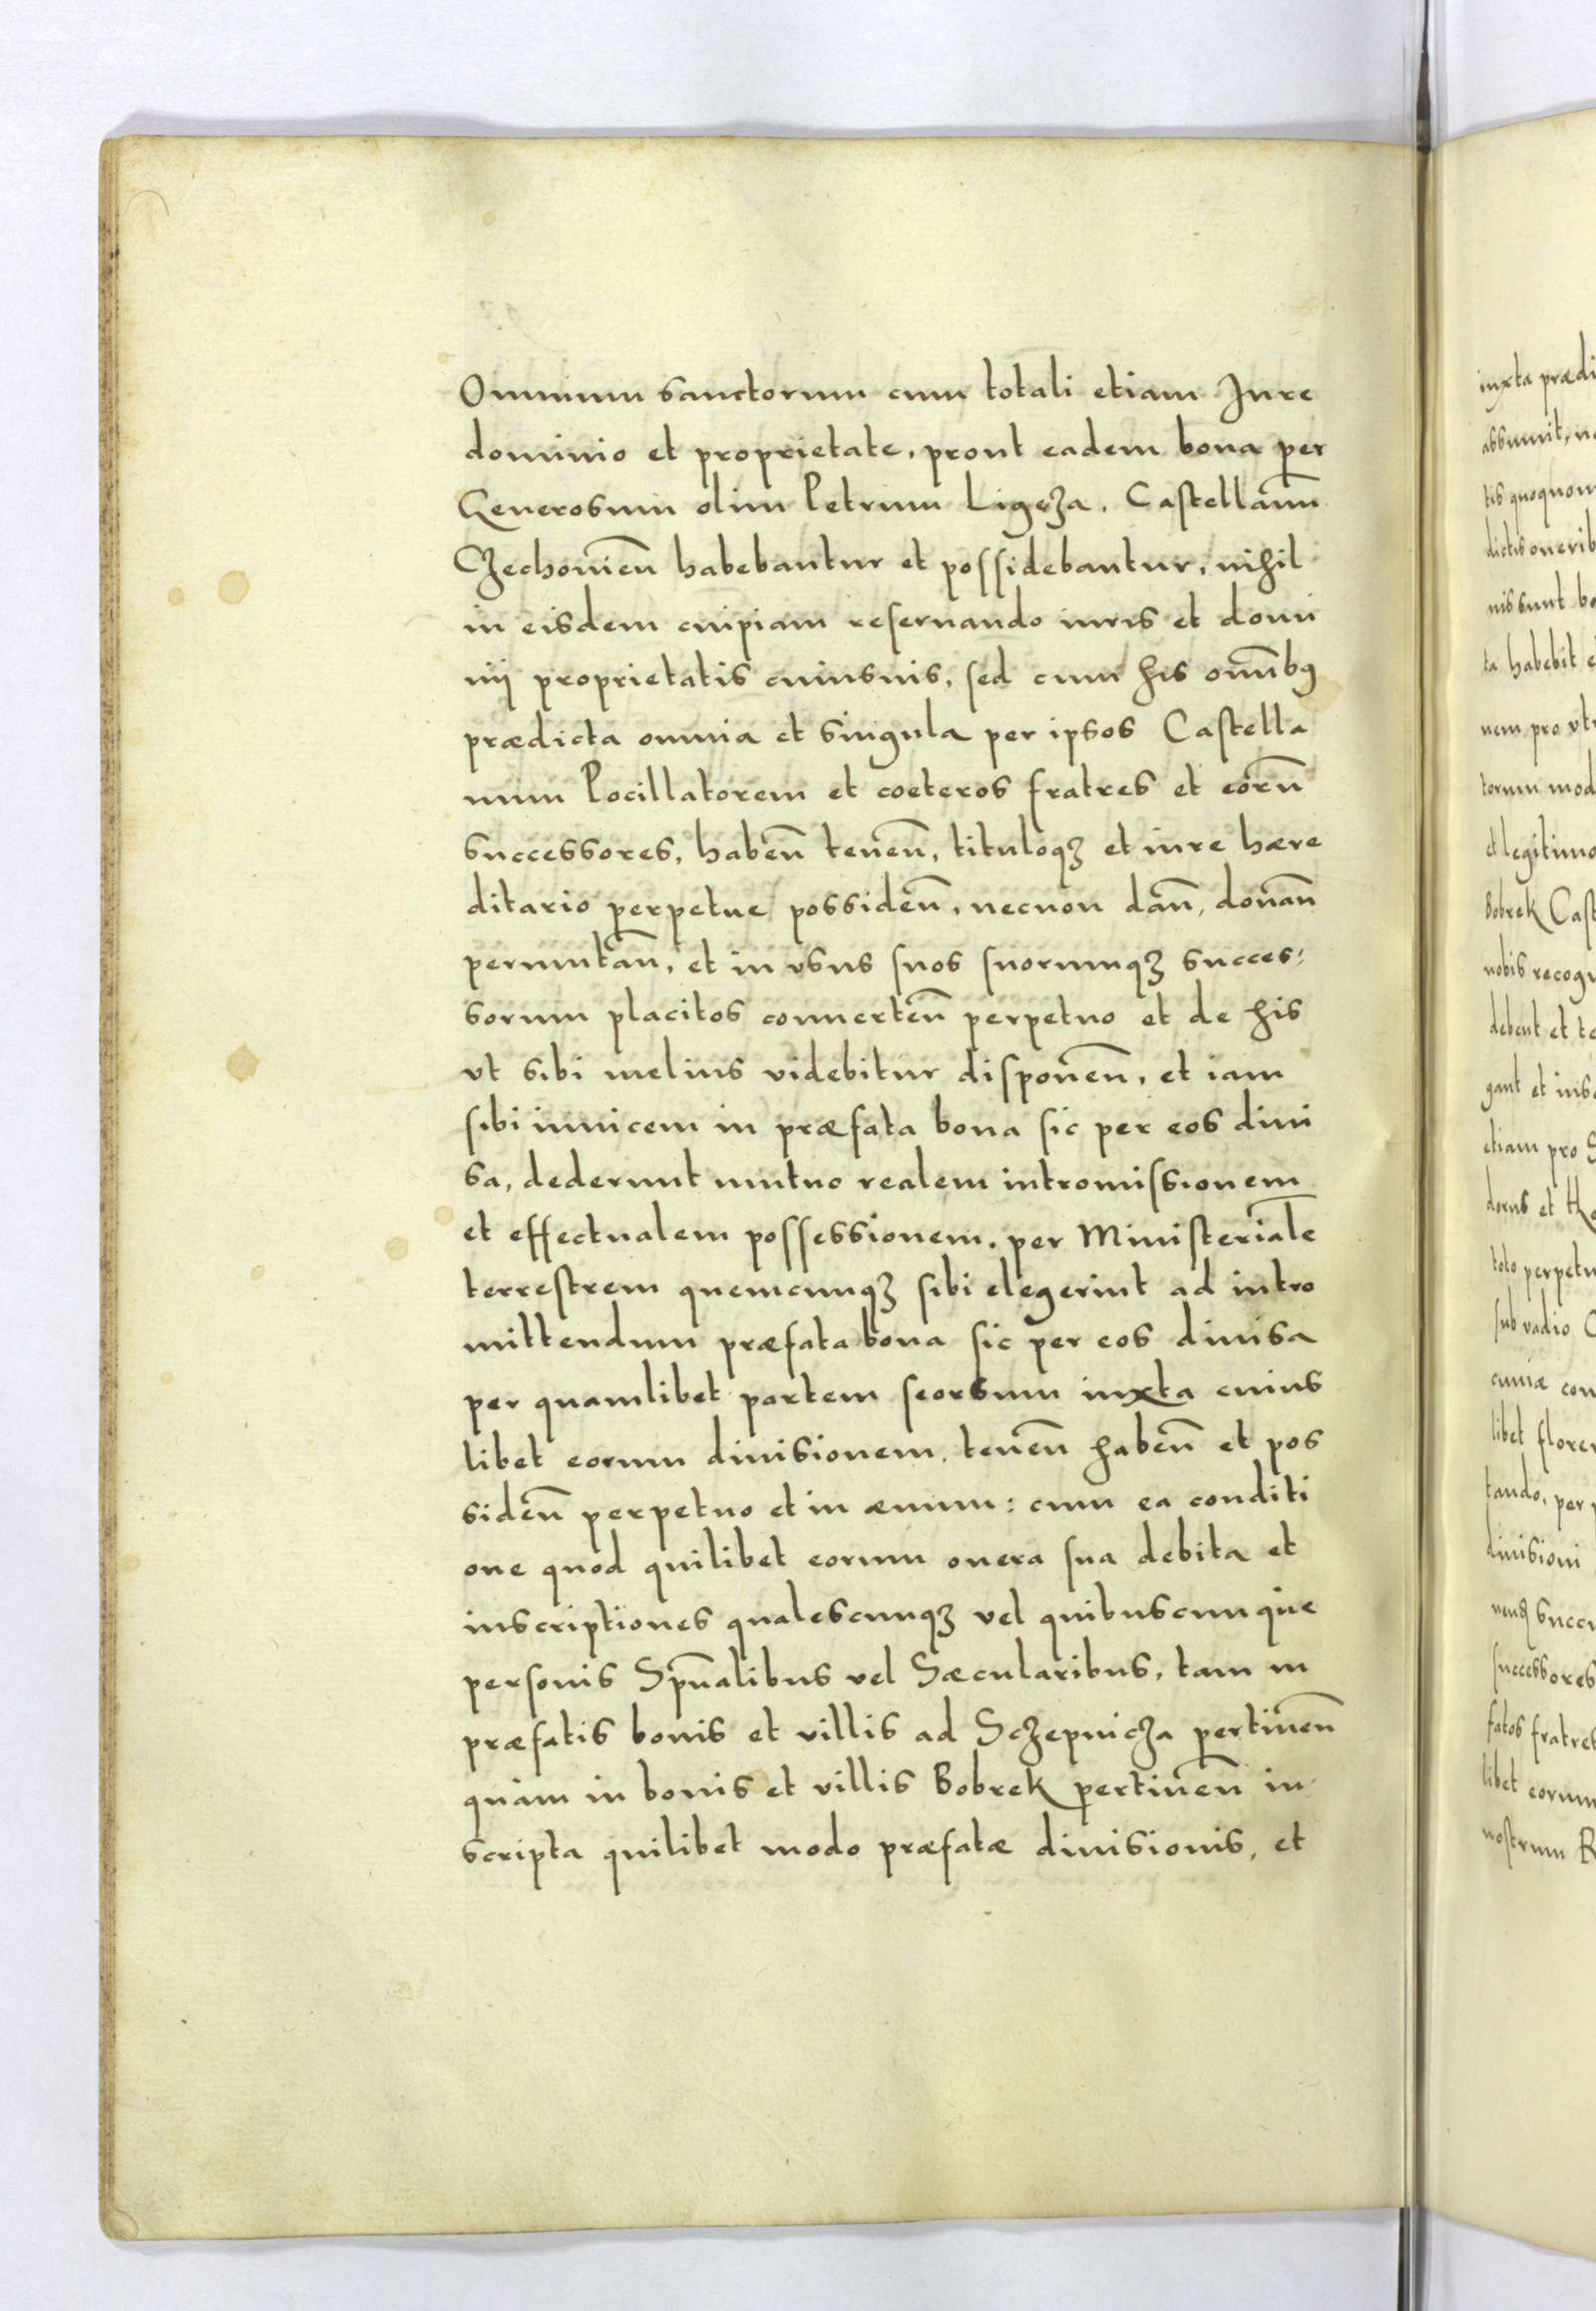 Omnium sanctorum cum totali etiam Jure
dominio et proprietate, prout eadem bona per
Generosum olim Petrum Ligęza, Castellanū
Czechovieñ habebantur et possidebantur, nihil
in eisdem cuipiam reseruando iuris et domi
nij proprietatis cuiusuis, sed cum his omībꝰ
prædicta omnia et singula per ipsos Castella
num Pocillatorem et coeteros fratres et eorū
successores, habeñ teneñ, tituloqꝫ et iure hære
ditario perpetue possideñ, necnon dañ, donañ
permutañ, et in vsus suos suorumqꝫ succes:
sorum placitos conuerteñ perpetuo et de his
vt sibi melius videbitur disponeñ, et iam
sibi inuicem in præfata bona sic per eos diui
sa, dederunt mutuo realem intromissionem
et effectualem possessionem, per Ministerialē
terrestrem quemcunqꝫ sibi elegerint ad intro
mittendum præfata bona sic per eos diuisa
per quamlibet partem seorsum iuxta cuius
libet eorum diuisionem, teneñ habeñ et pos
sideñ perpetuo et in æuum: cum ea conditi
one quod quilibet eorum onera sua debita et
inscriptiones qualescunqꝫ vel quibuscunque
personis Spūalibus vel Sæcularibus, tam in
præfatis bonis et villis ad Sczepnicza pertineñ
quàm in bonis et villis Bobrek pertineñ in
scripta quilibet modo præfatæ diuisionis, et
iuxta prædi
assumit, n
tis quoquom
dictis onerib
nis sunt bo
ta habebit e
nem pro vtr
torum mod
et legitimo
Bobrek Cast
nobis recogn
debent et te
gant et ins
etiam pro S
dorus et
toto perpetu
sub vadio C
cuniæ con
libet floren
tando, per
diuisioni
succ
successores
fatos fratres
libet eorum
nostrum R